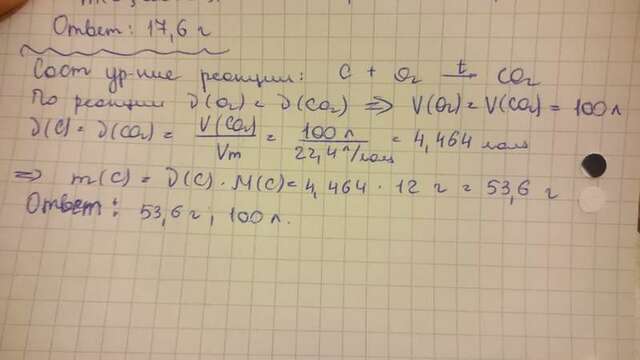 Ответ: 17,6 г
Сост ур-ние реакции: C + O₂ t→ CO₂
По реакции ν(O₂) = ν(CO₂) ⇒ V(O₂) = V(CO₂) = 100 л
ν(C) = ν(CO₂) = V(CO₂)/Vm = 100 л/22,4 л/моль = 4,464 моль
⇒ m(C) = ν(C) · M(C) = 4,464 · 12 г = 53,6 г
Ответ: 53,6 г, 100 л.